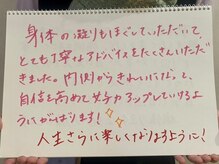 身体の凝りもほぐしていただいて、
とても丁寧なアドバイスをたくさんいただ
きました。内側からきれいになっと、
自信を高めて女子力アップしていけるよ
うにがんばります!
人生さらに楽しくなりますように!